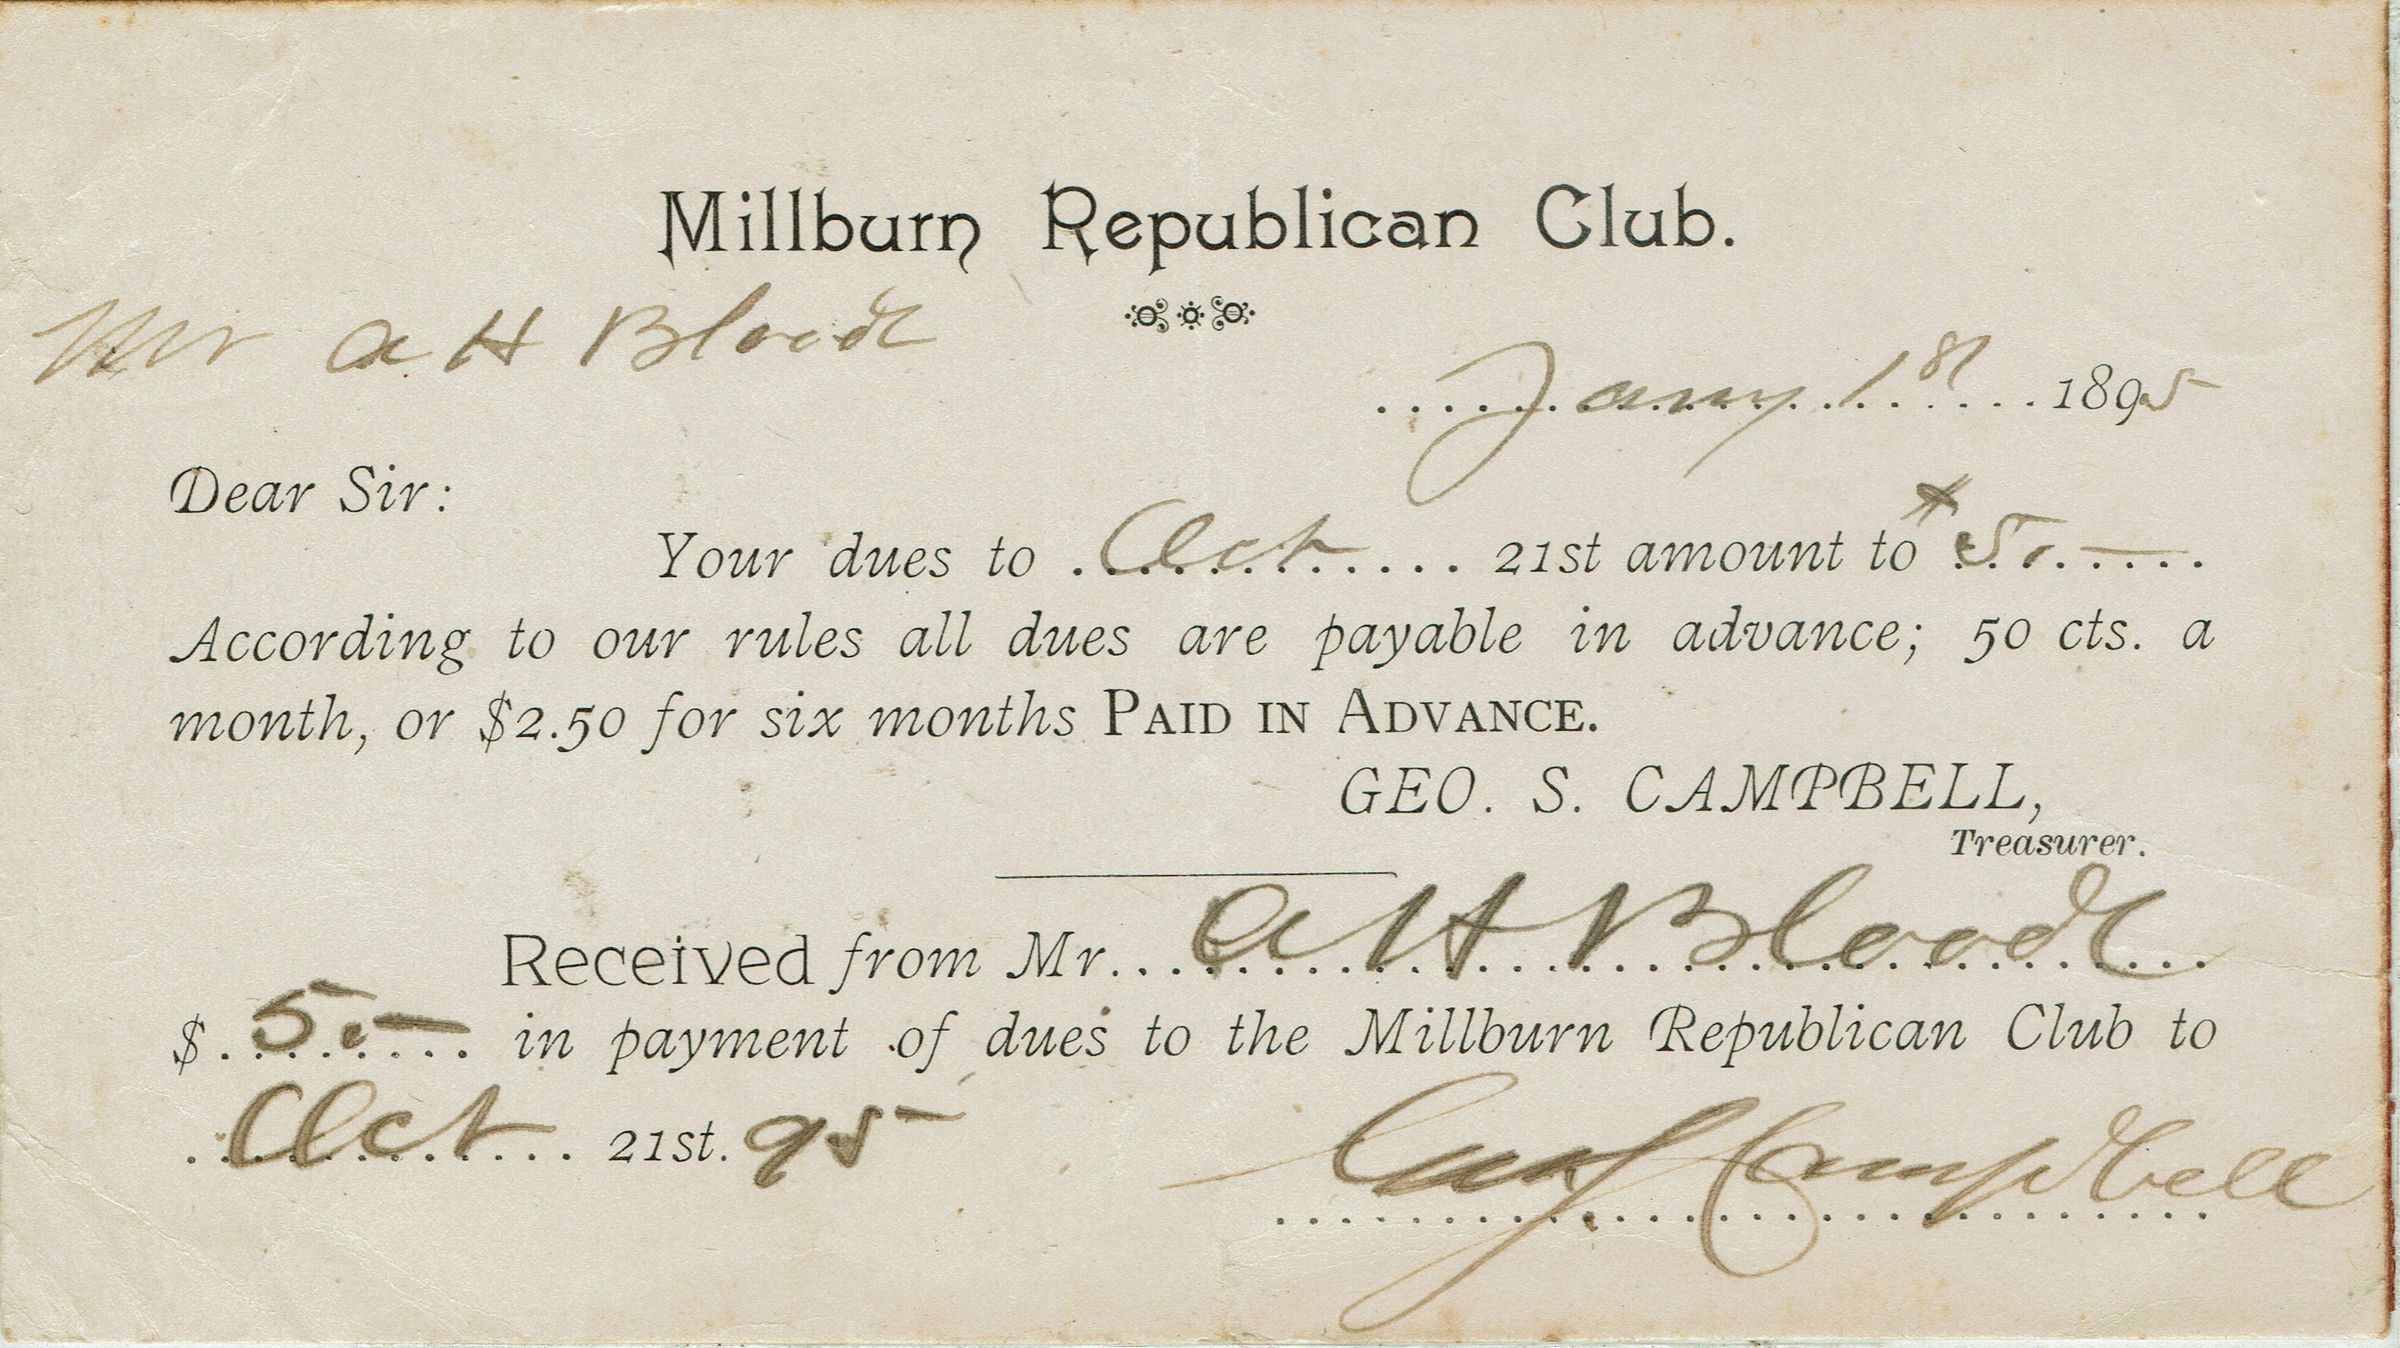 Millburn Republican Club.
Mr A H Blood
Jany 1st 1895
Dear Sir:
Your dues to Oct 21st amount to $5.—
According to our rules all dues are payable in advance; 50 cts. a
month, or $2.50 for six months PAID IN ADVANCE.
GEO. S. CAMPBELL,
Treasurer.
Received from Mr. A H Blood
$ 5.— in payment of dues to the Millburn Republican Club to
Oct 21st. 95
Campbell